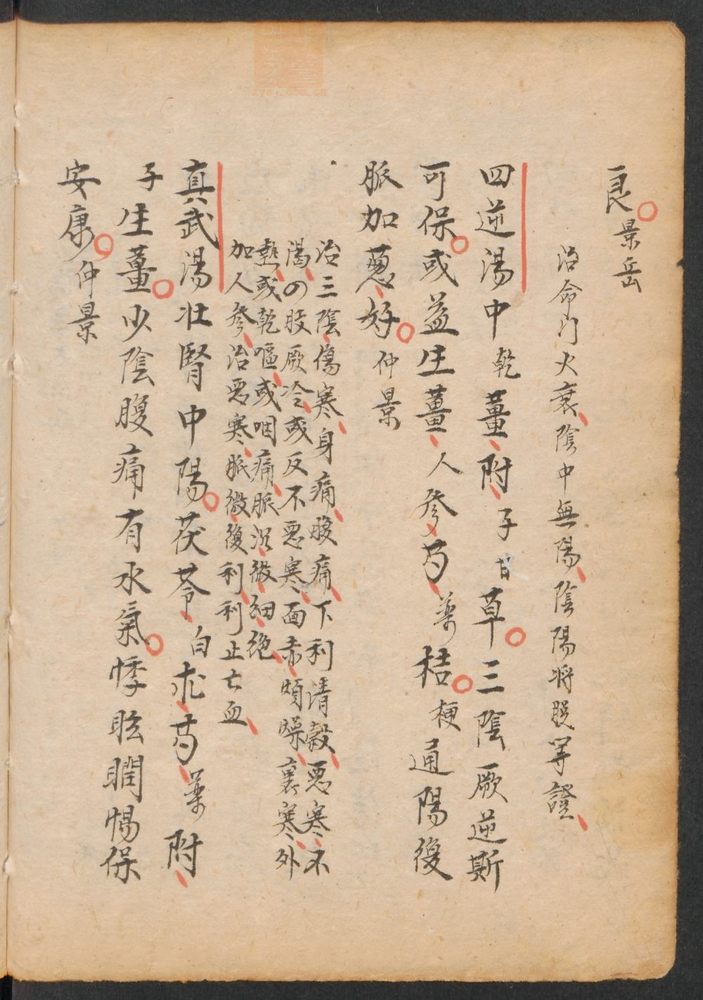 良景岳
治命门火衰陰中無陽陰陽將脫等證
四逆湯中乾薑附子甘草三陰厥逆斯
可保或益生薑人參芍藥桔梗通陽復
脈加蔥好仲景
治三陰傷寒身痛腹痛下利清穀惡寒不
渴四肢厥冷或反不惡寒面赤煩燥裏寒外
熱或乾嘔或咽痛脈沉微細絕
加人參治惡寒脈微復利利止亡血
真武湯壯腎中陽茯苓白朮芍藥附
子生薑少陰腹痛有水氣悸眩瞤惕保
安康仲景